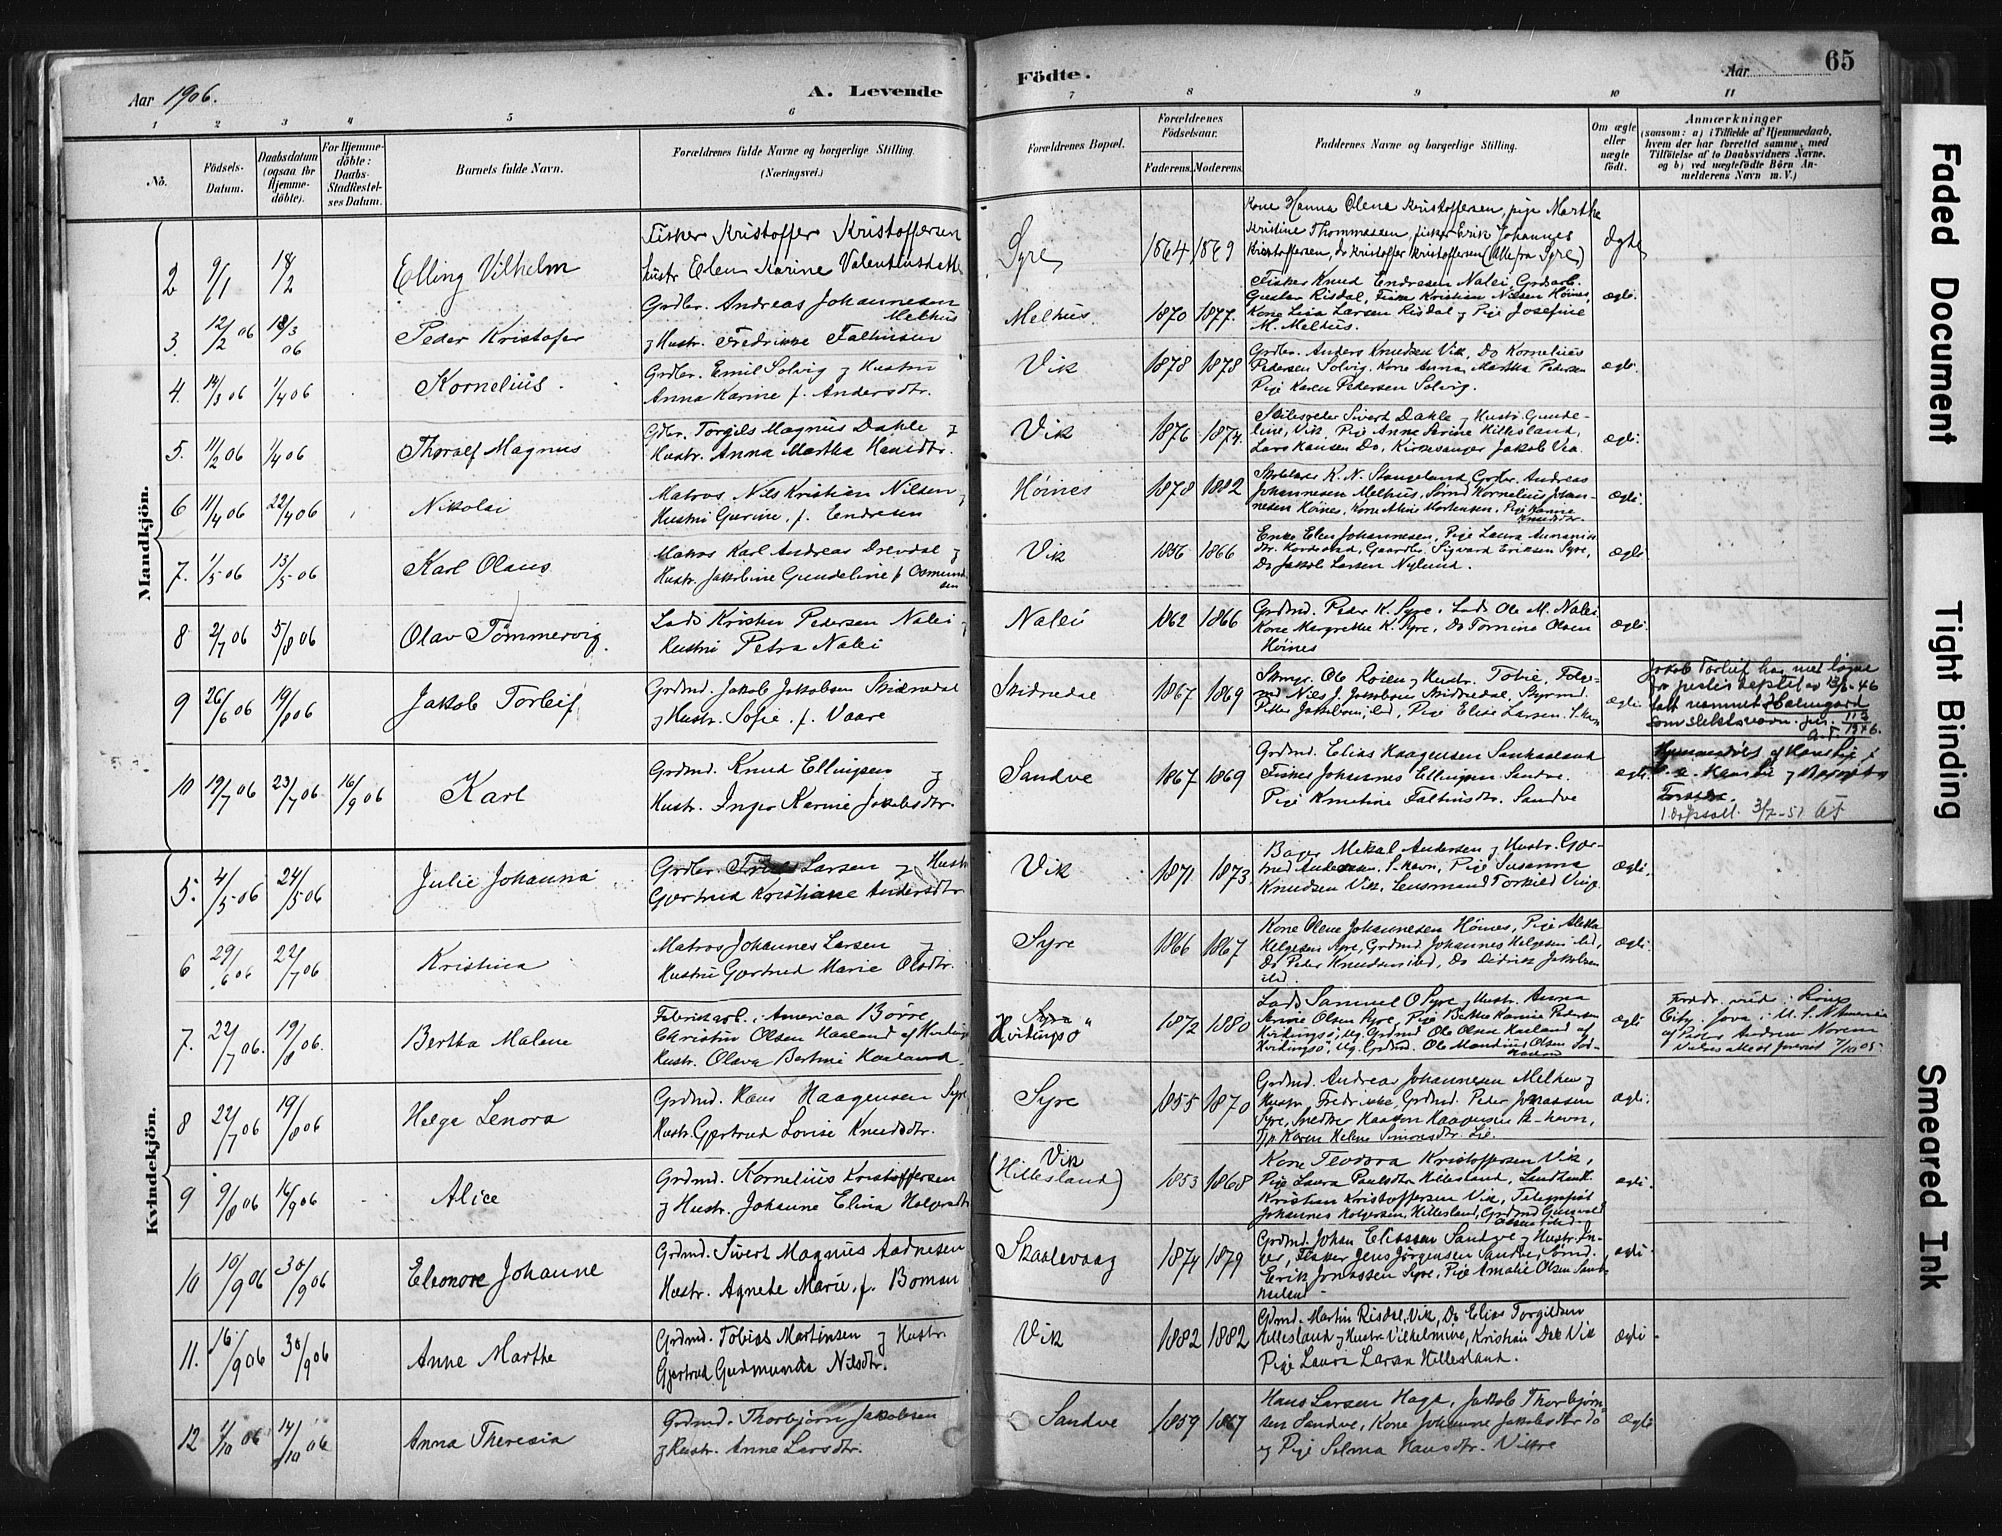 Aar 1906.
A. Levende
Födte.
Aar
65
1 2 3 4 5 6 7 8 9 10 11
No.
Födsels-
Datum.
Daabsdatum
(ogsaa for
Hjemme-
döbte).
For Hjemme-
döbte:
Daabs-
Stadfæstel-
ses Datum.
Barnets fulde Navn.
Forældrenes fulde Navne og borgerlige Stilling.
(Næringsvei.)
Forældrenes Bopæl.
Forældrenes
Födselsaar.
Faderens. Moderens.
Faddernes Navne og borgerlige Stilling.
Om ægte
eller
uægte
födt.
Anmærkninger
(saasom: a) i Tilfælde af Hjemmedaab,
hvem der har forrettet samme, med
Tilföielse af to Daabsvidners Navne,
og b) ved uægtefödte Börn An-
melderens Navn m. V.)
Mandkjön.
2 9/1 18/2 Elling Vilhelm
Fisker Kristoffer Kristoffersen
Hustr Elen Karine Valentinsdatter
Syre 1864 1869
Kone Hanna Olena Kristoffersen, pige Marthe
Kristine Thommasen, fisker Erik Johannes
Kristoffersen, do Kristoffer Kristoffersen (Alle fra Syre)
Ægte
3. 12/2 06 18/3 06 Peder Kristofer
Grdbr. Andreas Johannesen
Melhus
og Hustr. Fredrikke Faltinsen
Melhus. 1870 1877.
Fisker Knud Endresen Nalei, Grdarb.
Gustav Risdal, Fisker Kristian Nilsen Höines,
Kone Lina Larsen Risdal og Pige Josefine
M. Melhus.
ægte.
4. 14/3 06 1/4 06 Kornelius.
Grdbr. Emil Solvig og Hustru
Anna Karine f. Andersdtr.
Vik 1878 1878
Grdbr. Anders Knudsen Vik, Do Kornelius
Pedersen Solvig. Kone Anna Martha Pedersen
Pige Karen Pedersen Solvig.
ægte.
5. 11/2 06 1/4 06 Thoralf Magnus
Gdbr. Torgils Magnus Dahle og
Hustr. Anna Martha Hansdtr.
Vik 1876 1874.
Sivert Dahle og Hustr. Gunde-
line, Vik, Pige Anne Serine Hillesland,
Lars Hansen Do, Kirkesanger Jakob Vea
ægte.
6 11/4 06 22/4 06 Nikolai
Matros Nils Kristian Nilsen og
Hustru Gurine, f. Endresen
Höines 1878 1882
K. N. Stangeland, Grdbr. Andreas
Johannesen Melhus, Kornelius Johan-
nesen Höines, Kone Aline Mortensen, Pige Hanne
Knudsdtr.
ægte.
7. 1/5 06 13/5 06 Karl Olaus
Matros Karl Andreas Drevdal og
Hustr. Jakobine Gundeline f. Osmund-
sen
Vik 1856 1866
Enke Elen Johannesen, Pige Laura Ananias
dtr. Kordestad, Gaardbr. Sigvard Eriksen Syre,
Do Jakob Larsen Nylund.
ægte.
8 2/7 06 5/8 06 Olav Tömmervig.
Lods Kristen Pedersen Nalei og
Hustru Petra Nalei
Nalei 1862 1866
Grdmd. Peder K. Syre. Lods Ole M. Nalei
Kone Margrethe K. Syre, Do Tomine Olsen
Höines
ægte.
9 26/6 06 19/8 06 Jakob Torleif
Grdmd. Jakob Jakobsen Skidnedal
og Hustr. Sofie. f. Vaare
Skidnedal 1867 1869
Ole Roien og Hustr. Tobie,
Nils J. Jakobsen Skidnedal, Styrmd.
Peter Jakobsen, ibd, Pige Elise Larsen. S.havn
ægte.
Jakob Torleif har med löyve
fra justisdeptet av 13/2-46
tatt namnet Palmgard
som slektsnavn. 11/3
1946.
10 19/7 06 23/7 06 16/9 06 Karl
Grdmd. Knud Ellingsen og
Hustr. Inger Karine Jakobsdtr.
Sandve 1867 1869
Grdmd. Elias Haagensen Sandhaaland
Fisker Johannes Ellingsen Sandve.
Pige Knutine Faltinsdtr. Sandve
ægte.
3/7-51
Kvindekjön.
5. 4/5 06 24/5 06 Julie Johanna
Grdbr. Larsen og Hustr
Gjertrud Kristianne Andersdtr.
Vik 1871 1873.
Bager Mikal Andersen og Hustr. Gjer-
trud Andersen. S.havn, Pige Susanna
Knudsen Vik, Lensmand Torkild Vinje
ægte.
6 29/6 06 22/7 06 Kristina
Matros Johannes Larsen og
Hustru Gjertrud Marie Olsdtr.
Syre 1866 1867
Kone Olene Johannesen Höines, Pige Aletta
Helgesen Syre, Grdmd. Johannes Helgesen ibd,
Do Peder Knudsen ibd, Do Didrik Jakobsen
ibd.
ægte.
7. 22/7 06. 19/8 06. Bertha Malene
Fabrikarb. i Amerika Börre
Christin Olsen Haaland af Hvidings
Hustr. Olava Bertine Haaland.
Syre
Hvidingsö" 1872 1880
Lods Samuel O Syre og Hustr. Anna
Serine Olsen Syre, Pige Bertha Karine Pedersen
Kvidingsö, Ug. Grdmd. Ole Olsen Haaland af
Kvidingsö, Ug. Grdmd. Ole Mandius Olsen
ægte
Foræld. viet i Sioux
City. Iova i U. S. N Amerika
af Pastor Andreas Norem
7/10 05.
8 22/7 06 19/8 06 Helga Lenora
Grdmd. Hans Haagensen Syre,
Hustr. Gjertrud Lovise Knudsdtr.
Syre 1855 1870
Grdmd. Andreas Johannesen Melhus og
Hustr. Fredrikke, Grdmd. Peder Jonassen
Syre, Snedker Haagen Haagensen S-havn,
Tjp. Karen Helene Simonsdtr. Lie.
ægte.
9 9/8 06 16/9 06 Alice
Grdmd. Kornelius Kristoffersen
og Hustr. Johanne Elina Holgersdtr
Vik
(Hillesland) 1853 1868
Kone Teodora Kristoffersen Vik,
Pige Laura Paulsdtr. Hillesland, Landhdl.
Kristian Kristoffersen Vik, Telegrafist
Johannes Holgersen, Hillesland, Grdmd Gunvald
ægte.
10 10/9 06 30/9 06 Eleonore Johanne
Grdmd. Sivert Magnus Aadnesen
Hustr. Agnete Marie. f. Boman
Skaalevaag 1874 1879
Grdmd. Johan Eliassen Sandve og Hustr. In-
ger, Fisker Jens Jörgensen Sandve,
Erik Jonassen Syre, Pige Amalie Olsen
ægte.
11. 16/9 06 30/9 06 Anne Marthe
Grdmd. Tobias Martinsen og Hustr.
Gjertrud Gudmunda Nilsdtr.
Vik 1882 1882
Gdmd. Martin Risdal, Vik, Do Elias Torgildsen
Hillesland og Hustr. Vilhelmine, Kristian Dale Vik
Pige Laura Larsn Hillesland.
ægte.
12 1/10 06 14/10 06 Anna Theresia
Grdmd. Thorbjörn Jakobsen
og Hustr. Anne Larsdtr.
Sandve 1859 1867
Hans Larsen Haga, Jakob Thorbjörn-
sen Sandve, Kone Johanne Jakobsdtr do
og Pige Selma Hansdtr. Vikre
Ægte
Faded Document
Tight Binding
Smeared Ink